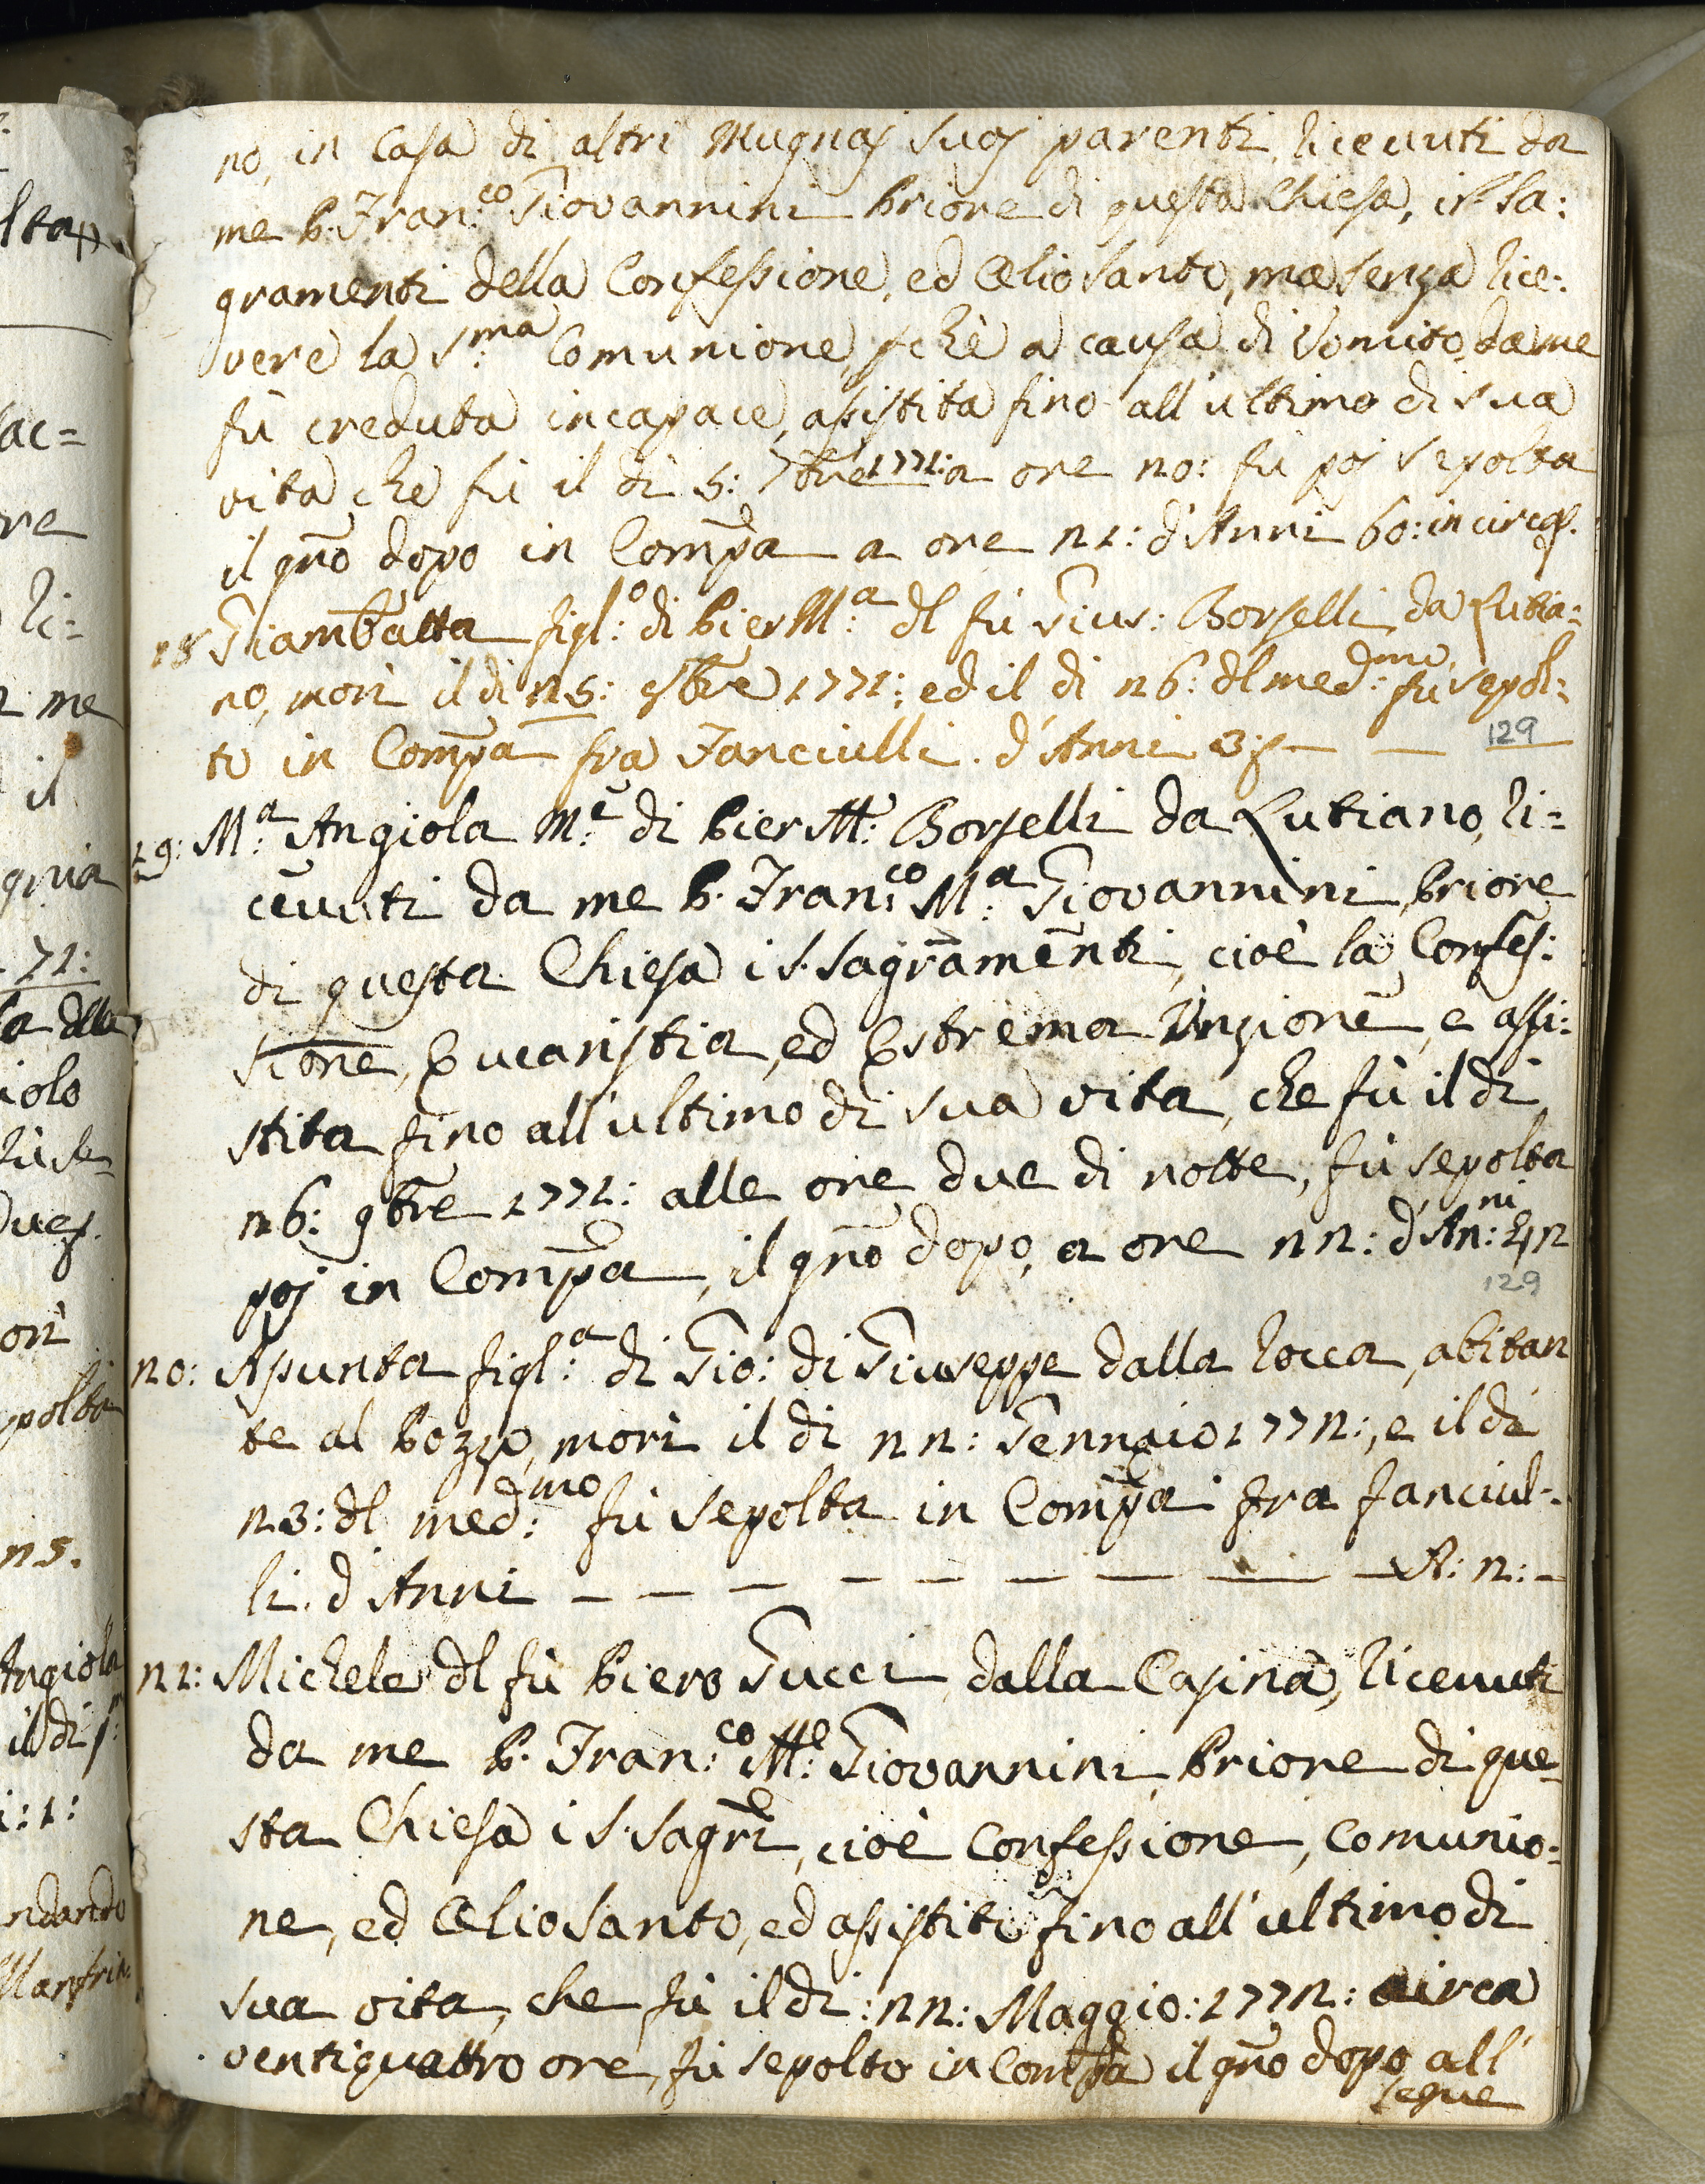 no, in Casa di altri Mugnaj suoj parenti, licevuti da
me P. Fran:co Giovannini Priore di questa Chiesa, i S. Sa:
gramenti della Confessione, ed Olio Santo, ma senza lice:
vere la S:ma Comunione, pchè a causa di Vomito, da me
fù creduta incapace, assistita fino all'ultimo di sua
vita che fù il dì 5: 7bre 1771: a ore 20: fù poj sepolta
il gno dopo in Compa a ore 21: d'Anni 60: in circa
18 Giambatta figl:o di Pier M:a dl fù Gius: Borselli da Lutia:
no, morì il di 25: 9bre 1771: ed il di 26: dl med:mo fù sepol:
to in Compa fra Fanciulli. d'Anni 3:
129
19: M:a Angiola M:e di Pier M: Borselli da Lutiano, li=
cevuti da me P. Fran:co M:a Giovannini Priore
di questa Chiesa i S. Sagramenti, cioè la Confes:
sione, Eucaristia, ed Estrema Unzione, e assi:
stita fino all'ultimo di sua vita, che fù il di
26: 9bre 1771: alle ore due di notte, fù sepolta
poj in Compa, il gno dopo, a ore 22: d'An:ni 42
129
20: Asunta figl:a di Gio: di Giuseppe dalla Rocca, abitan
te al Pozzo, morì il di 22: Gennaio 1772:, e il di
23: dl med:mo fù sepolta in Compa fra fanciul-
li. d'Anni — — — — — — — — — A: 2: —
21: Michele dl fù Piero Gucci dalla Casina, licevuti
da me P. Fran:co M: Giovannini Priore di que
sta Chiesa i S. Sagri, cioè Confessione, Comunio:
ne, ed Olio Santo, ed assistito fino all'ultimo di
sua vita, che fù il di: 22: Maggio: 1772: circa
ventiquattro ore, fù sepolto in Compa il gno dopo all'
segue